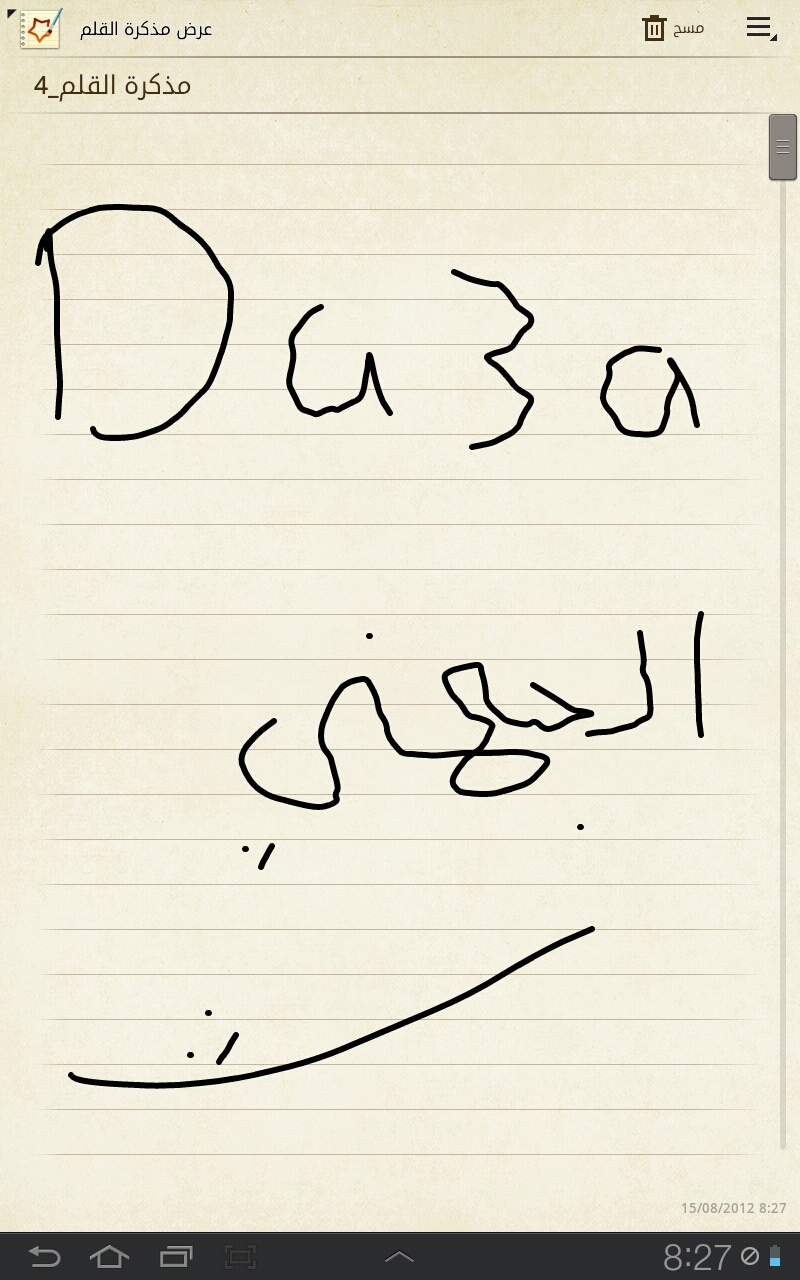 عرض مذكرة القلم
مسح
مذكرة القلم_4
Da3a
الجهني
15/08/2012 8:27
8:27